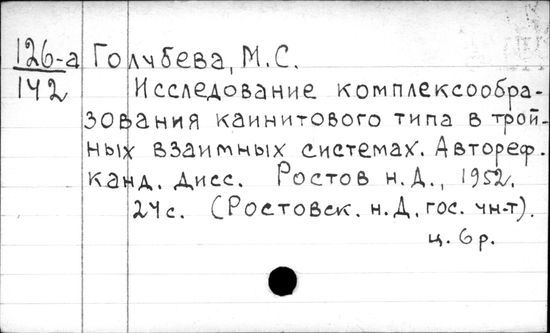 126-а Голубева, М.С.
142 Исследование комплексообра-
зования каинитового типа в трой-
ных взаимных системах. Автореф.
канд. дисс. Ростов н.Д., 1952.
24с. (Ростовск. н.Д. гос. ун-т).
ц. бр.